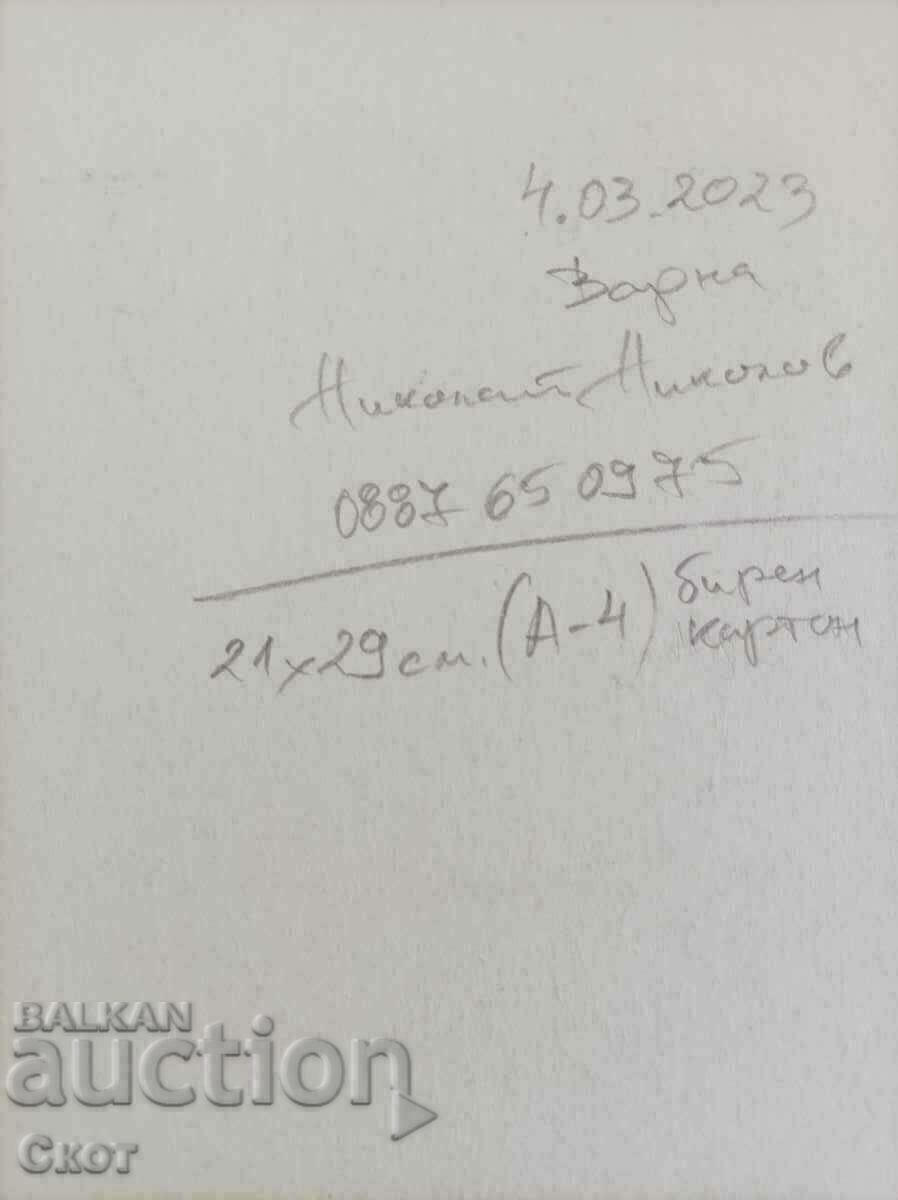 4.03.2023
Варна
Николай Николов
0887 650975
21x29см. (А-4) бирен
картон
BALKAN
auction
Скот